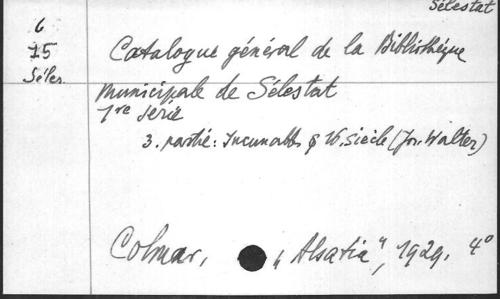 Sélestat
6
15
Séles.
Catalogue général de la Bibliothèque
municipale de Sélestat
1re série
3. partie: Incunables & 16. siècle (Jos. Walter)
Colmar, „Alsatia", 1929. 4°